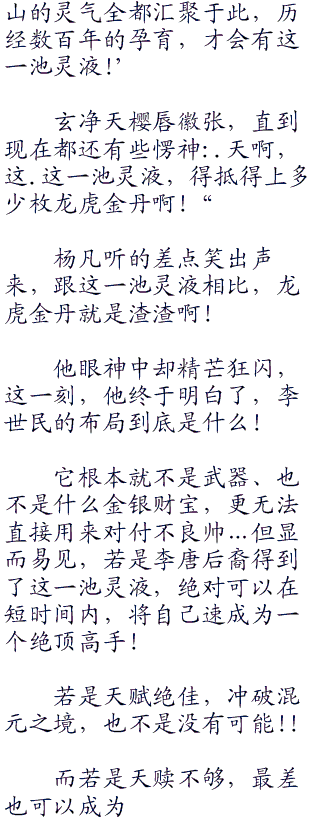 山的灵气全都汇聚于此，历
经数百年的孕育，才会有这
一池灵液!’
玄净天樱唇徽张，直到
现在都还有些愣神:.天啊，
这.这一池灵液，得抵得上多
少枚龙虎金丹啊！“
杨凡听的差点笑出声
来，跟这一池灵液相比，龙
虎金丹就是渣渣啊！
他眼神中却精芒狂闪，
这一刻，他终于明白了，李
世民的布局到底是什么！
它根本就不是武器、也
不是什么金银财宝，更无法
直接用来对付不良帅…但显
而易见，若是李唐后裔得到
了这一池灵液，绝对可以在
短时间内，将自己速成为一
个绝顶高手！
若是天赋绝佳，冲破混
元之境，也不是没有可能!!
而若是天赎不够，最差
也可以成为